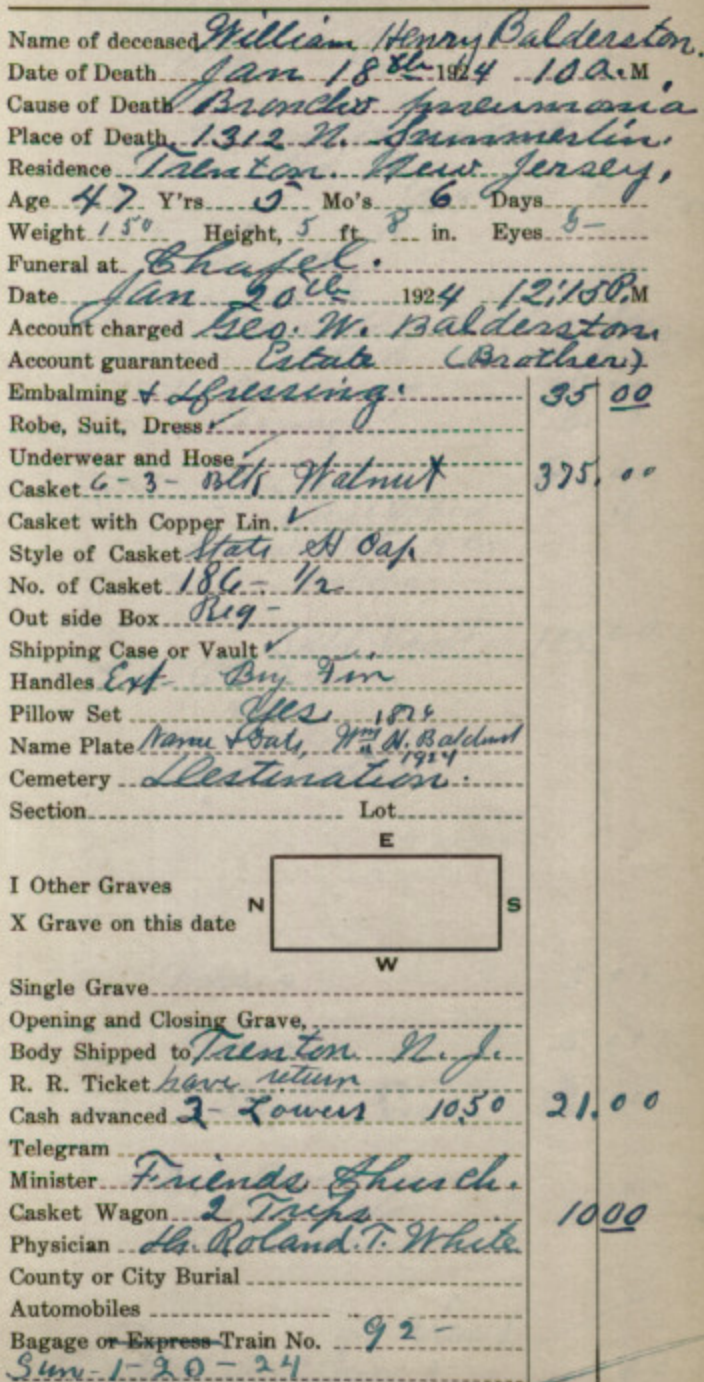 Name of deceased William Henry Balderston.
Date of Death Jan 18th 1924 10 a.M
Cause of Death Broncho pneumonia
Place of Death. 1312 N. Summerlin.
Residence Trenton. New Jersey.
Age 47 Y'rs 5 Mo's 6 Days
Weight 150 Height, 5 ft. 8 in. Eyes
Funeral at Chapel.
Date Jan 20th 1924 12:15 P.M
Account charged Geo. W. Balderston.
Account guaranteed Estate (Brother)
Embalming & Dressing. 35 00
Robe, Suit, Dress ✓
Underwear and Hose ✓
Casket 6-3- Blk Walnut 375. 00
Casket with Copper Lin. ✓
Style of Casket State Cap
No. of Casket 186- 1/2
Out side Box Reg-
Shipping Case or Vault ✓
Handles Ext
Pillow Set Yes
Name Plate Name & Date, Wm H. 1924
Cemetery Destination.
Section Lot
E
I Other Graves
N S
X Grave on this date
W
Single Grave
Opening and Closing Grave,
Body Shipped to Trenton N. J.
R. R. Ticket have return
Cash advanced 2- Lowers 10.50 21.00
Telegram
Minister Friends Church.
Casket Wagon 2 Trips 10 00
Physician Dr. Roland. T. White
County or City Burial
Automobiles
Bagage or Express Train No. 92-
Sun-1-20-24